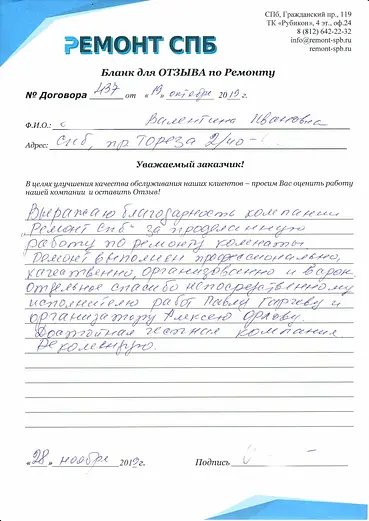 СПб, Гражданский пр., 119
ТК «Рубикон», 4 эт., оф.24
8 (812) 642-22-32
info@remont-spb.ru
remont-spb.ru
РЕМОНТ СПБ
Бланк для ОТЗЫВА по Ремонту
№ Договора 437 от «19» октября 2019г.
Ф.И.О.: Валентина Ивановна
Адрес: СПб, пр Тореза 2/40-
Уважаемый заказчик!
В целях улучшения качества обслуживания наших клиентов – просим Вас оценить работу
нашей компании и оставить Отзыв!
Выражаю благодарность компании
"Ремонт СПб" за проделанную
работу по ремонту комнаты
Ремонт выполнен профессионально,
качественно, организованно и в срок.
Отдельное спасибо непосредственному
исполнителю работ Павлу Гаргеву и
организатору Алексею Орлову.
Достойная честная компания.
Рекомендую.
«28» ноября 2019г.
Подпись